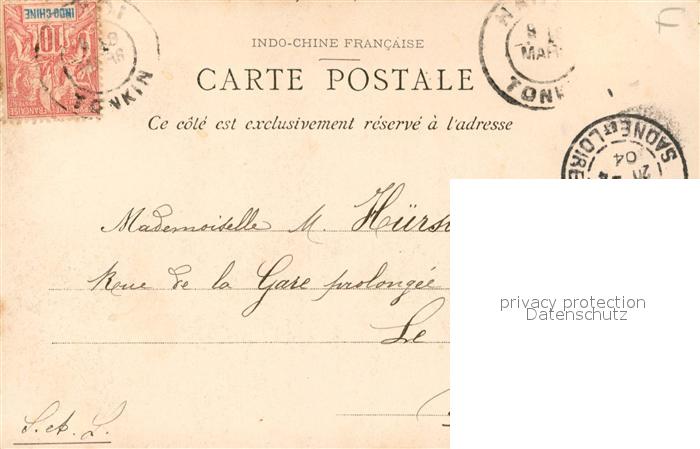 INDO-CHINE
10
FRANÇAISE
TONKIN
INDO-CHINE FRANÇAISE
CARTE POSTALE
Ce côté est exclusivement réservé à l'adresse
MAR
TONK
SAONE ET LOIRE
04
Mademoiselle M.
Rue de la Gare prolongée
Le
S. et L.
privacy protection
Datenschutz